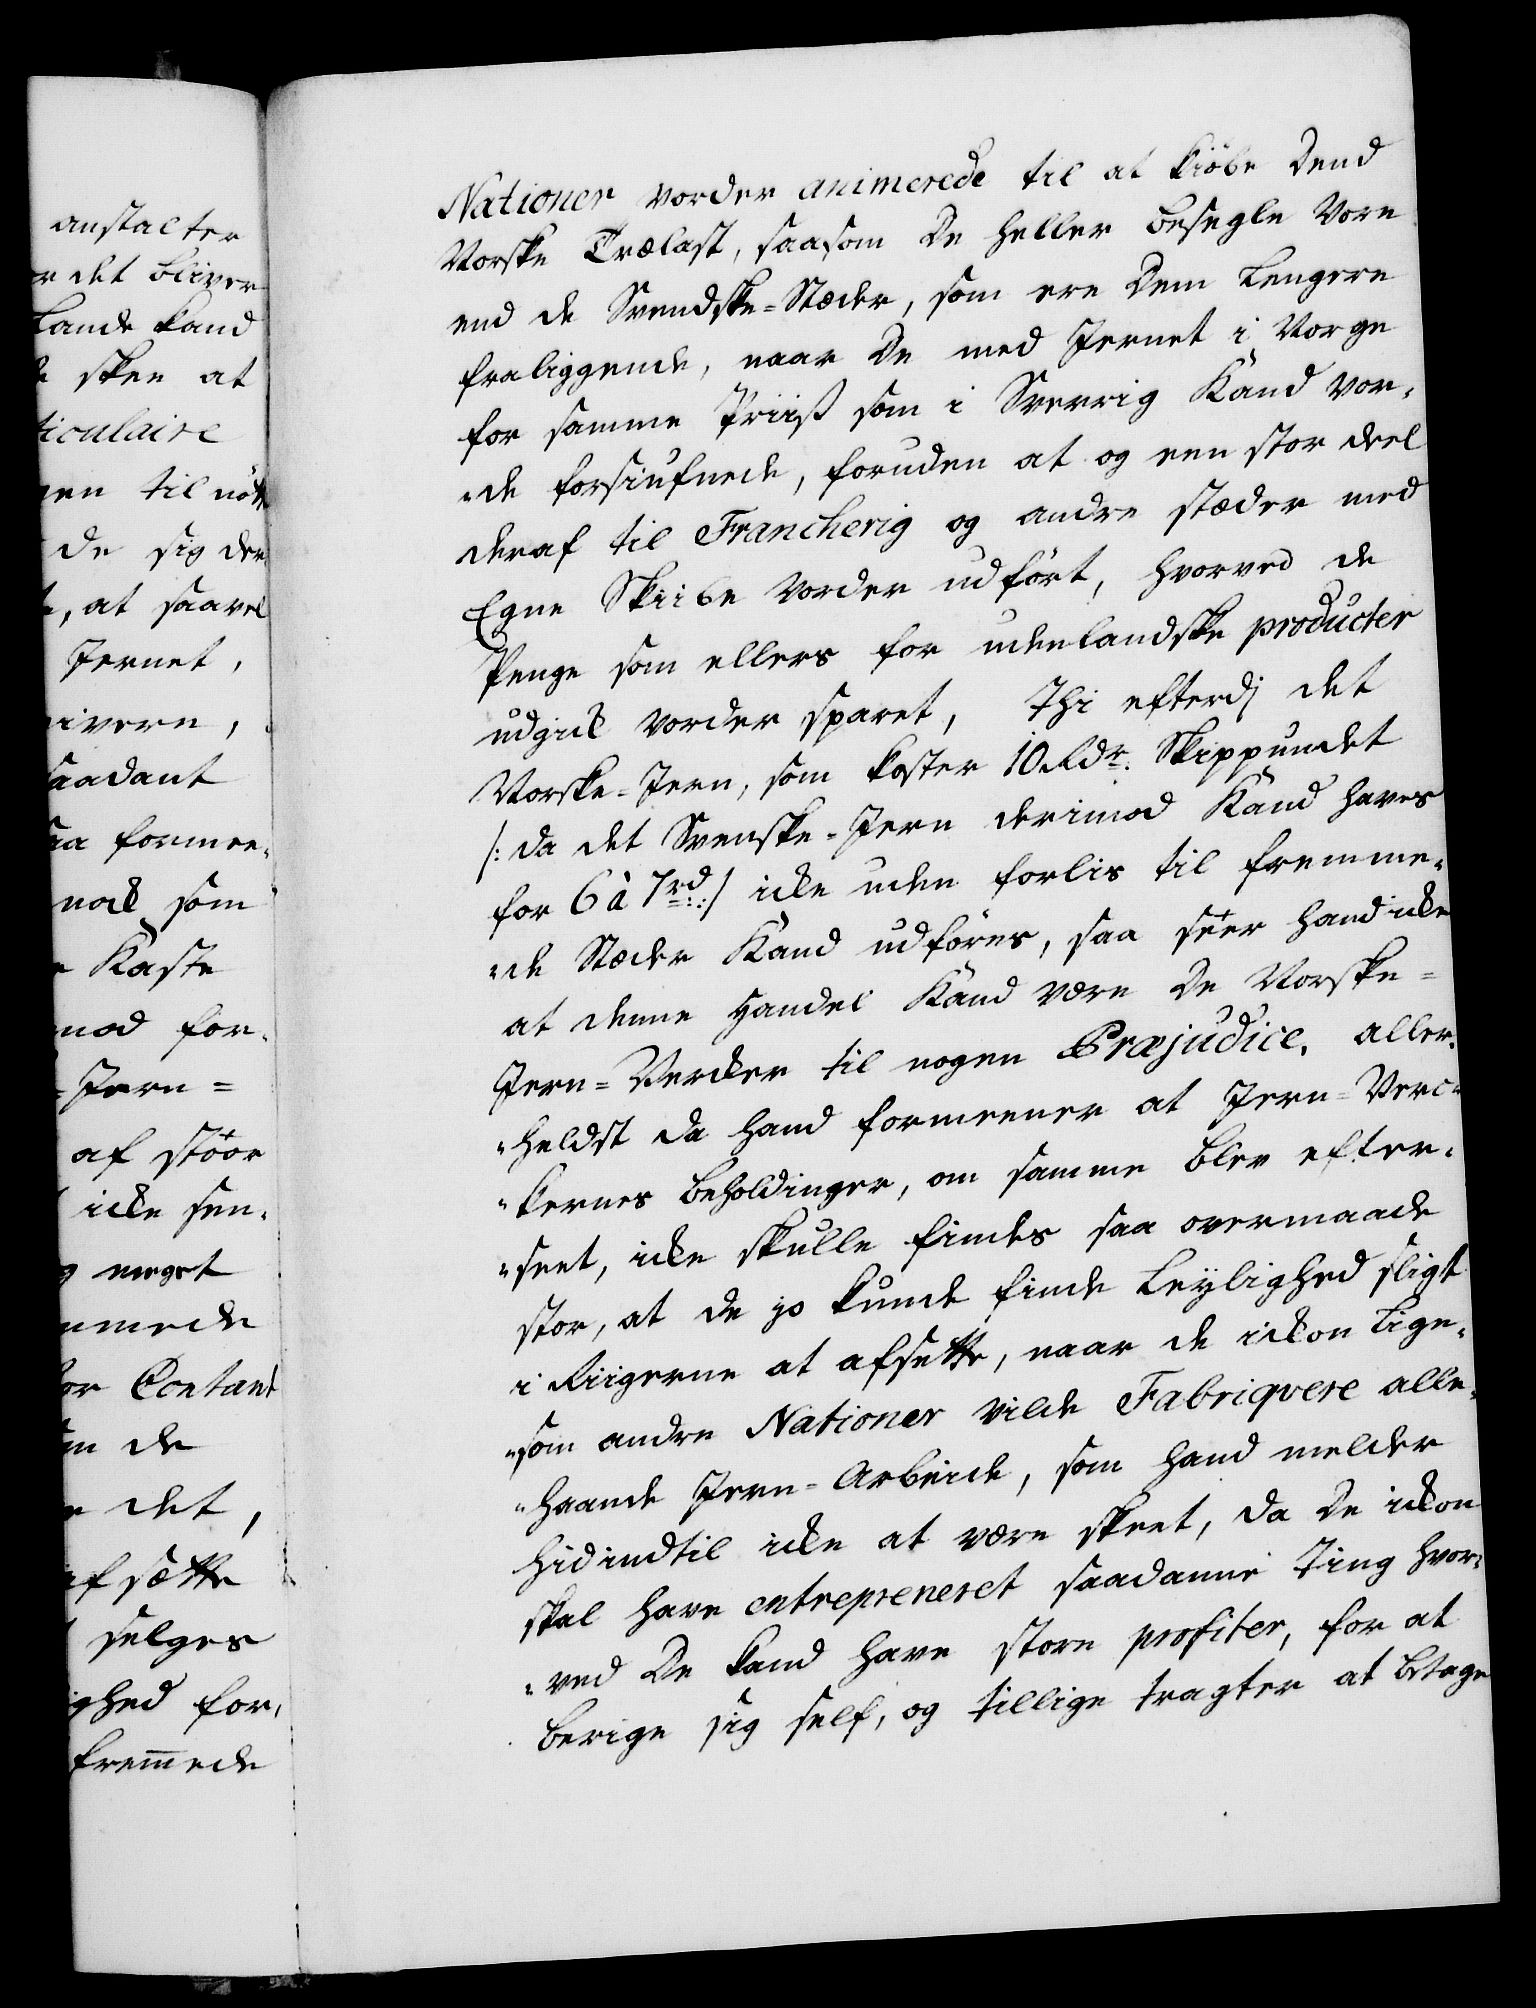 anstalter
r det bliver
Lande kand
e skee at
ticulaire
gen til nött
de sig der
t, at saavel
Jernet,
givern,
saadant
saa formee-
nock som
e Kaste
mod for-
- Jern =
af stöör
icke sen-
g meget
mmede
for Contant
em de
e det,
afsætte
selges
ighed for-
fremede
Nationer vorder animerede til at kiöbe Dend
Norske Trælast, saasom De heller besegle Vore
end de Svendske=Stæder, som ere Dem Lengere
fraliggende, naar De med Jernet i Norge
for samme Priis som i Sverrig Kand vor-
-de forsiufnede, foruden at og een stor deel
deraf til Francherig og andre stæder med
Egne Skiibe Vorder udfört, hvorved de
Penge som ellers for udenlandske producter
udgick vorder sparet, Thi efterdj det
Norske=Jern, som koster 10 Rdr. Skippundet
/: da det Svenske=Jern derimod Kand haves
for 6 à 7 rd :/ icke uden forlis til fremme-
-de Stæder Kand udföres, saa séer hand icke
at denne Handel Kand være De Norske=
Jern=Vercker til nogen Præjudice, aller-
-heldst da hand formeener at Jern=Verc-
-kernes beholdinger, om samme blev efter-
-seet, icke skulle findes saa overmaade
stor, at de jo kunde finde Leylighed sligt
i Riigerne at afsette, naar de ickon Lige-
-som andre Nationer vilde Fabriqvere alle-
-haande Jern=Arbeide, som hand melder
hidindtil icke at være skeet, da De ickon
skal have entrepreneret saadanne Ting hvor-
-ved De kand have store profiter, for at
berige sig self, og tillige tragter at betage